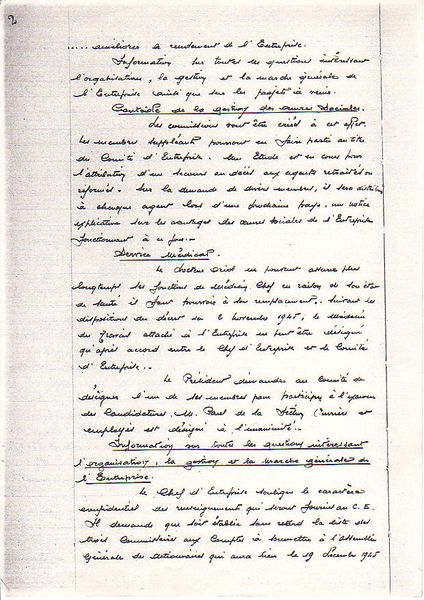 2
..... améliorer le rendement de l'Entreprise.
Information sur toutes les questions intéressant
l'organisation, la gestion et la marche générale de
l'Entreprise ainsi que sur les projets à venir.
Contrôle de la gestion des œuvres Sociales.
Des commissions vont être créés à cet effet.
Les membres suppléants pourront en faire partie au titre
du Comité d'Entreprise. Une Etude est en cours pour
l'attribution d'un secours au décès aux agents retraités ou
réformés. Sur la demande de divers membres, il sera distribué
à chaque agent lors d'une prochaine paye, une notice
explicative sur les avantages des œuvres sociales de l'Entreprise
fonctionnant à ce jour.
Service Médical.
Le docteur ne pouvant assurer plus
longtemps les fonctions de Médecin Chef en raison de son état
de santé il faut pourvoir à son remplacement. Suivant les
dispositions du décret du 2 novembre 1945, le Médecin
du Travail attaché à l'Entreprise ne peut être désigné
qu'après accord entre le Chef d'Entreprise et le Comité
d'Entreprise..
Le Président demande au Comité de
désigner l'un de ses membres pour participer à l'examen
des Candidatures. M. Paul de la Section Ouvriers et
employés est désigné à l'unanimité.
Information sur toutes les questions intéressant
l'organisation, la gestion et la marche générale de
l'Entreprise.
Le Chef d'Entreprise souligne le caractère
confidentiel des renseignements qui seront fournis au C.E.
Il demande que soit établie sans retard la liste des
trois Commissaires aux Comptes à soumettre à l'Assemblée
Générale des Actionnaires qui aura lieu le 19 Décembre 1945